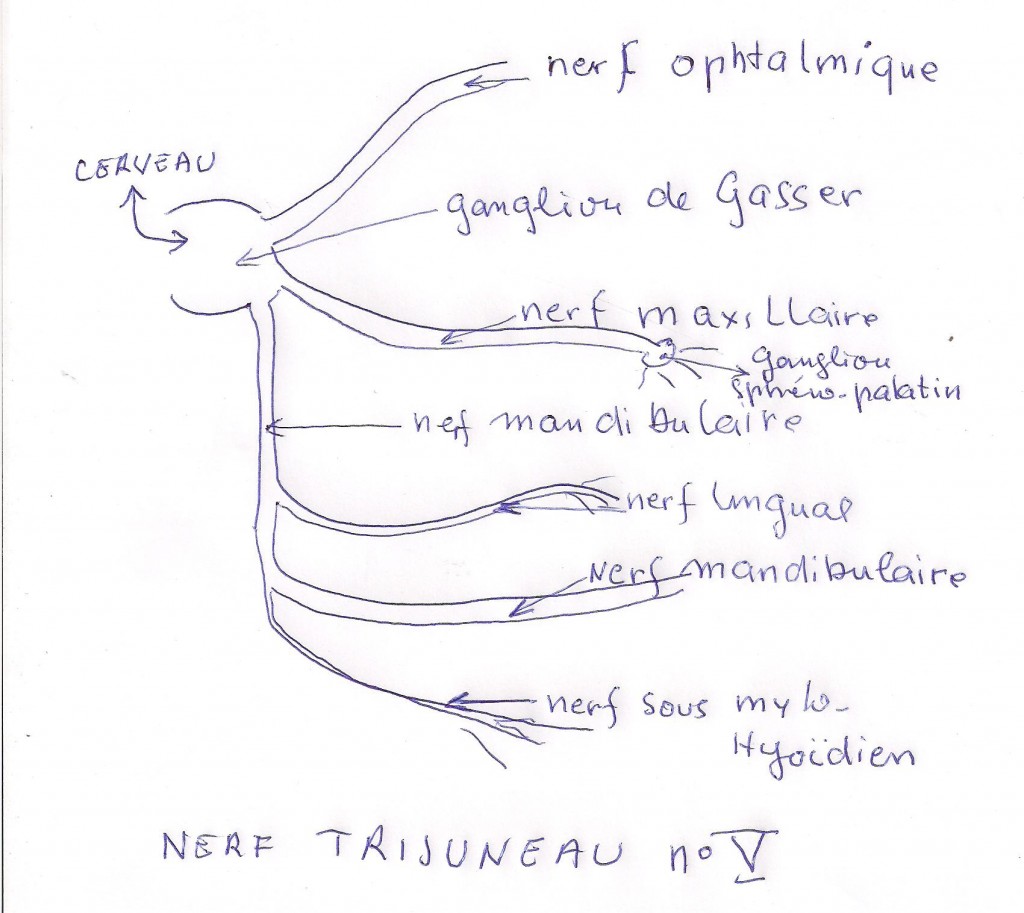 nerf ophtalmique
CERVEAU
ganglion de Gasser
nerf maxillaire
Ganglion
sphéno-palatin
nerf mandibulaire
nerf lingual
Nerf mandibulaire
nerf sous mylo-
Hyoïdien
NERF TRIJUNEAU no V